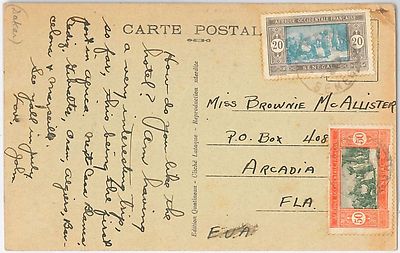 (Dakar)
CARTE POSTALE
AFRIQUE OCCIDENTALE FRANÇAISE
20
20
SÉNÉGAL
How do you like the
hotel? Am having
a very interesting trip,
so far, this being the first
port in africa. next Casa Blanca,
Cadiz, Gibralta, Oran, Algiers, Bar-
celona & Marseille.
See y'all in July
Love, John
Edition Quantineau - Cliché Lataque - Reproduction interdite
Miss Brownie McAllister
P.O. Box 408
Arcadia
FLA.
E.U.A.
50
50